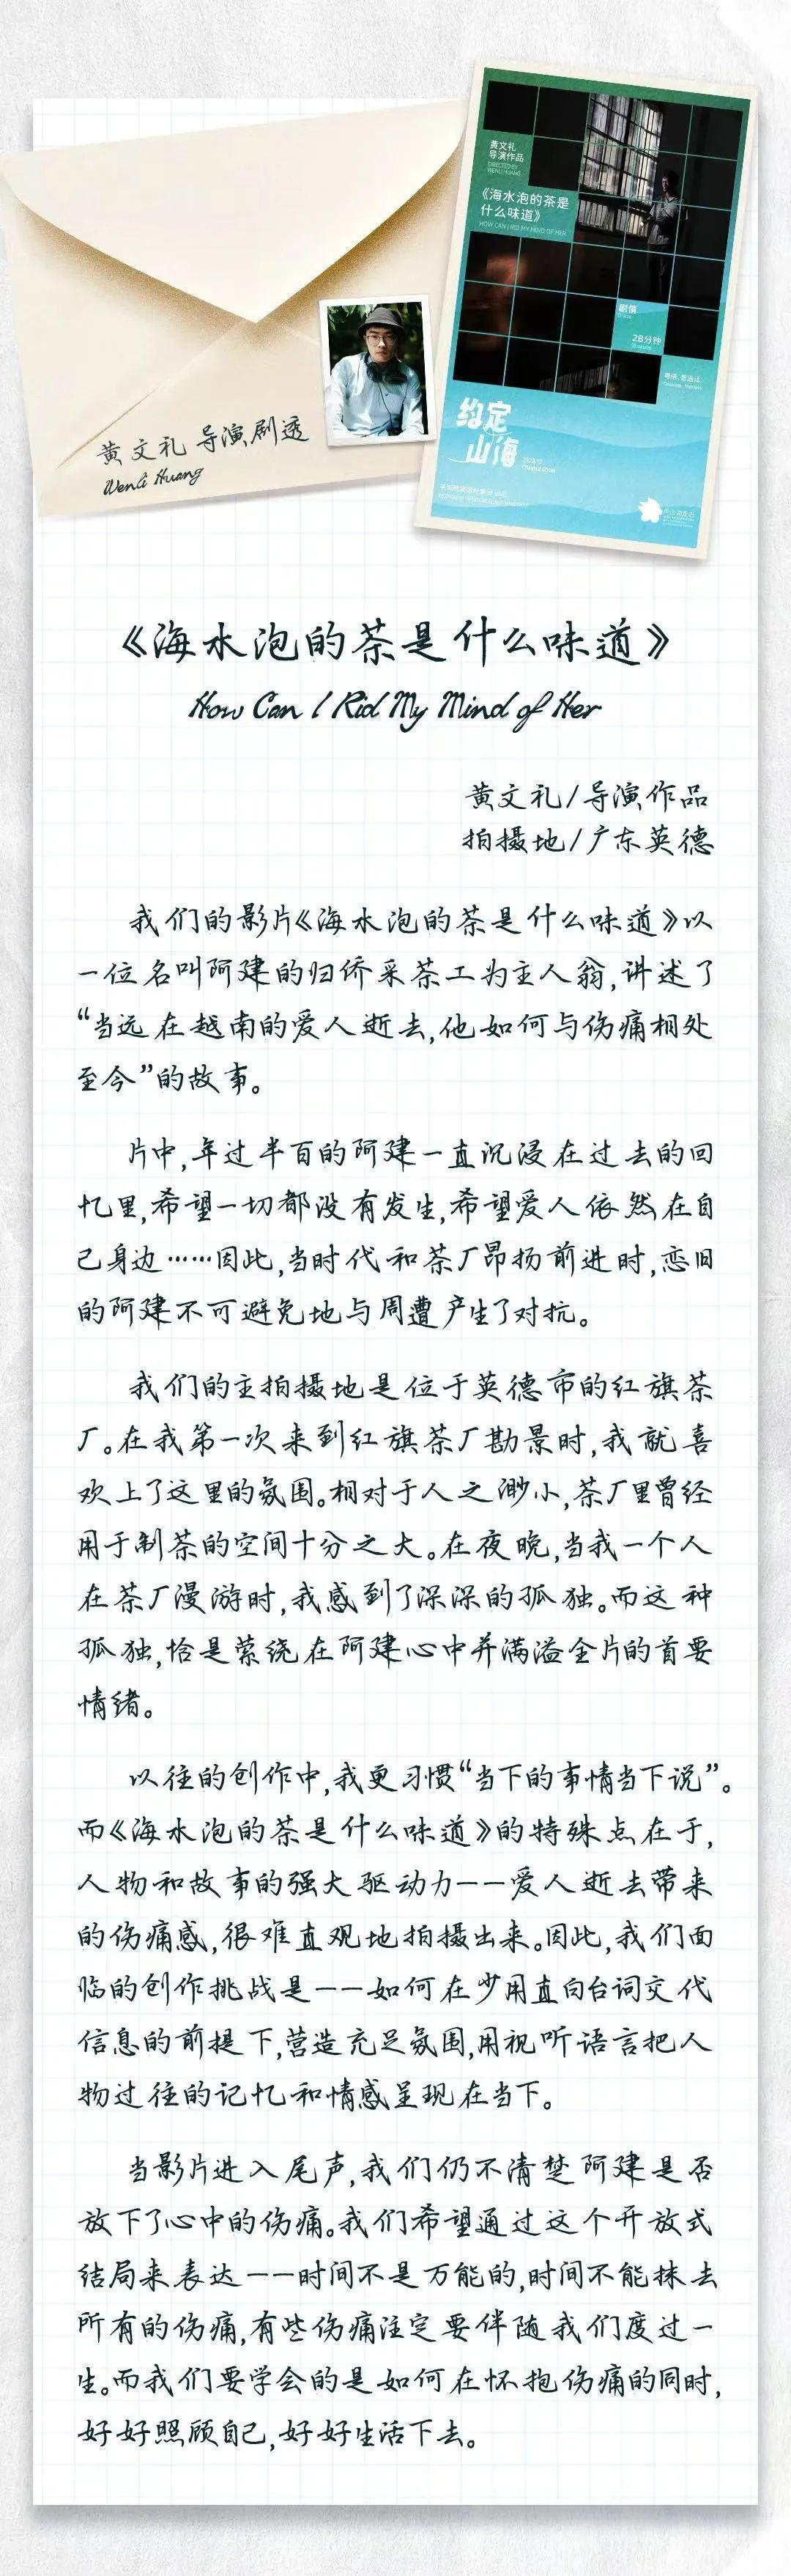 黄文礼
导演作品
DIRECTED BY
WENLI HUANG
《海水泡的茶是
什么味道》
HOW CAN I RID MY MIND OF HER
剧情
Drama
28分钟
粤语、粤语法
约定
山海
黄文礼 导演剧透
Wenli Huang
《海水泡的茶是什么味道》
How Can I Rid My Mind of Her
黄文礼/导演作品
拍摄地/广东英德
我们的影片《海水泡的茶是什么味道》以
一位名叫阿建的归侨采茶工为主人翁,讲述了
“当远在越南的爱人逝去,他如何与伤痛相处
至今”的故事。
片中,年过半百的阿建一直沉浸在过去的回
忆里,希望一切都没有发生,希望爱人依然在自
己身边……因此,当时代和茶厂昂扬前进时,恋旧
的阿建不可避免地与周遭产生了对抗。
我们的主拍摄地是位于英德市的红旗茶
厂。在我第一次来到红旗茶厂勘景时,我就喜
欢上了这里的氛围。相对于人之渺小,茶厂里曾经
用于制茶的空间十分之大。在夜晚,当我一个人
在茶厂漫游时,我感到了深深的孤独。而这种
孤独,恰是萦绕在阿建心中并满溢全片的首要
情绪。
以往的创作中,我更习惯“当下的事情当下说”。
而《海水泡的茶是什么味道》的特殊点在于,
人物和故事的强大驱动力——爱人逝去带来
的伤痛感,很难直观地拍摄出来。因此,我们面
临的创作挑战是——如何在少用直白台词交代
信息的前提下,营造充足氛围,用视听语言把人
物过往的记忆和情感呈现在当下。
当影片进入尾声,我们仍不清楚阿建是否
放下了心中的伤痛。我们希望通过这个开放式
结局来表达——时间不是万能的,时间不能抹去
所有的伤痛,有些伤痛注定要伴随我们度过一
生。而我们要学会的是如何在怀抱伤痛的同时,
好好照顾自己,好好生活下去。